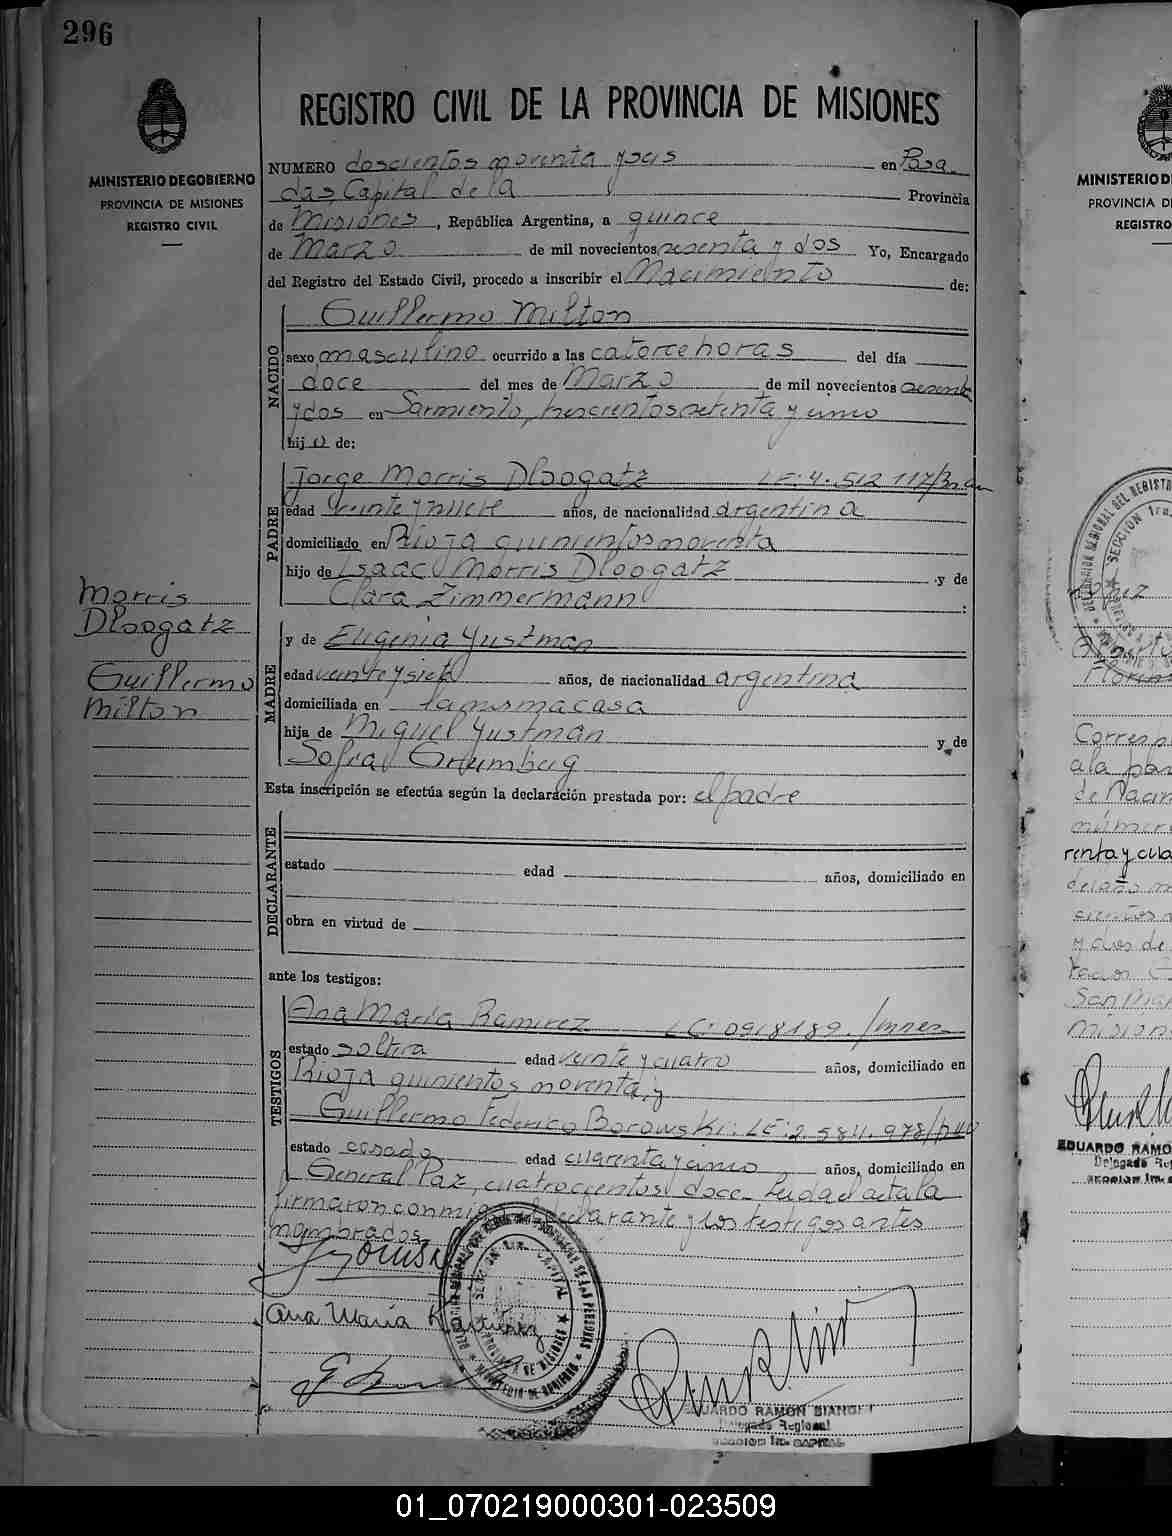 296
REGISTRO CIVIL DE LA PROVINCIA DE MISIONES
MINISTERIO DE GOBIERNO
PROVINCIA DE MISIONES
REGISTRO CIVIL
NUMERO doscientos noventa y seis en Posa-
das, Capital de la Provincia
de Misiones, República Argentina, a quince
de Marzo de mil novecientos sesenta y dos Yo, Encargado
del Registro del Estado Civil, procedo a inscribir el Nacimiento de:
NACIDO
Guillermo Milton
sexo masculino ocurrido a las catorce horas del día
doce del mes de Marzo de mil novecientos sesenta
y dos en Sarmiento, trescientos setenta y cinco
hijo de:
PADRE
Jorge Morris Dloogatz LE: 4.512.117/
edad veinte y nueve años, de nacionalidad argentina
domiciliado en Rioja quinientos noventa
hijo de Isaac Morris Dloogatz y de
Clara Zimmermann :
MADRE
y de Eugenia Yustman
edad veinte y siete años, de nacionalidad argentina
domiciliada en la misma casa
hija de Miguel Yustman y de
Sofía Grumberg
Esta inscripción se efectúa según la declaración prestada por: el padre
DECLARANTE
estado edad años, domiciliado en
obra en virtud de
ante los testigos:
TESTIGOS
Ana María Ramirez LC: 0918189./mnes
estado soltera edad veinte y cuatro años, domiciliado en
Rioja quinientos noventa, y
Guillermo Federico Borowski: LE: 2.584.978/
estado casado edad cuarenta y cinco años, domiciliado en
General Paz, cuatrocientos doce_ Leida el acta la
firmaron conmigo el declarante y los testigos antes
nombrados
Ana María
EDUARDO RAMON BIANCHI
Delegado Regional
SECCION 1ra. CAPITAL
Morris
Dloogatz
Guillermo
Milton
MINISTERIO D
PROVINCIA D
REGISTRO
Corresp
a la par
de Nacim
número
renta y cua
del año m
cientos n
y dos de
San Mar
Misione
EDUARDO RAMO
Delegado Re
SECCION 1ra.
01_070219000301-023509